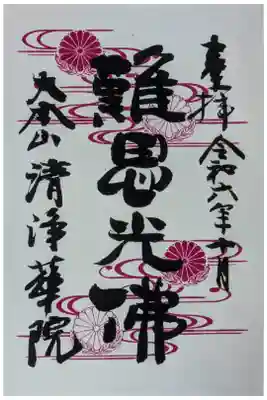 奉拝 令和六年十月
難思光佛
大本山 清浄華院